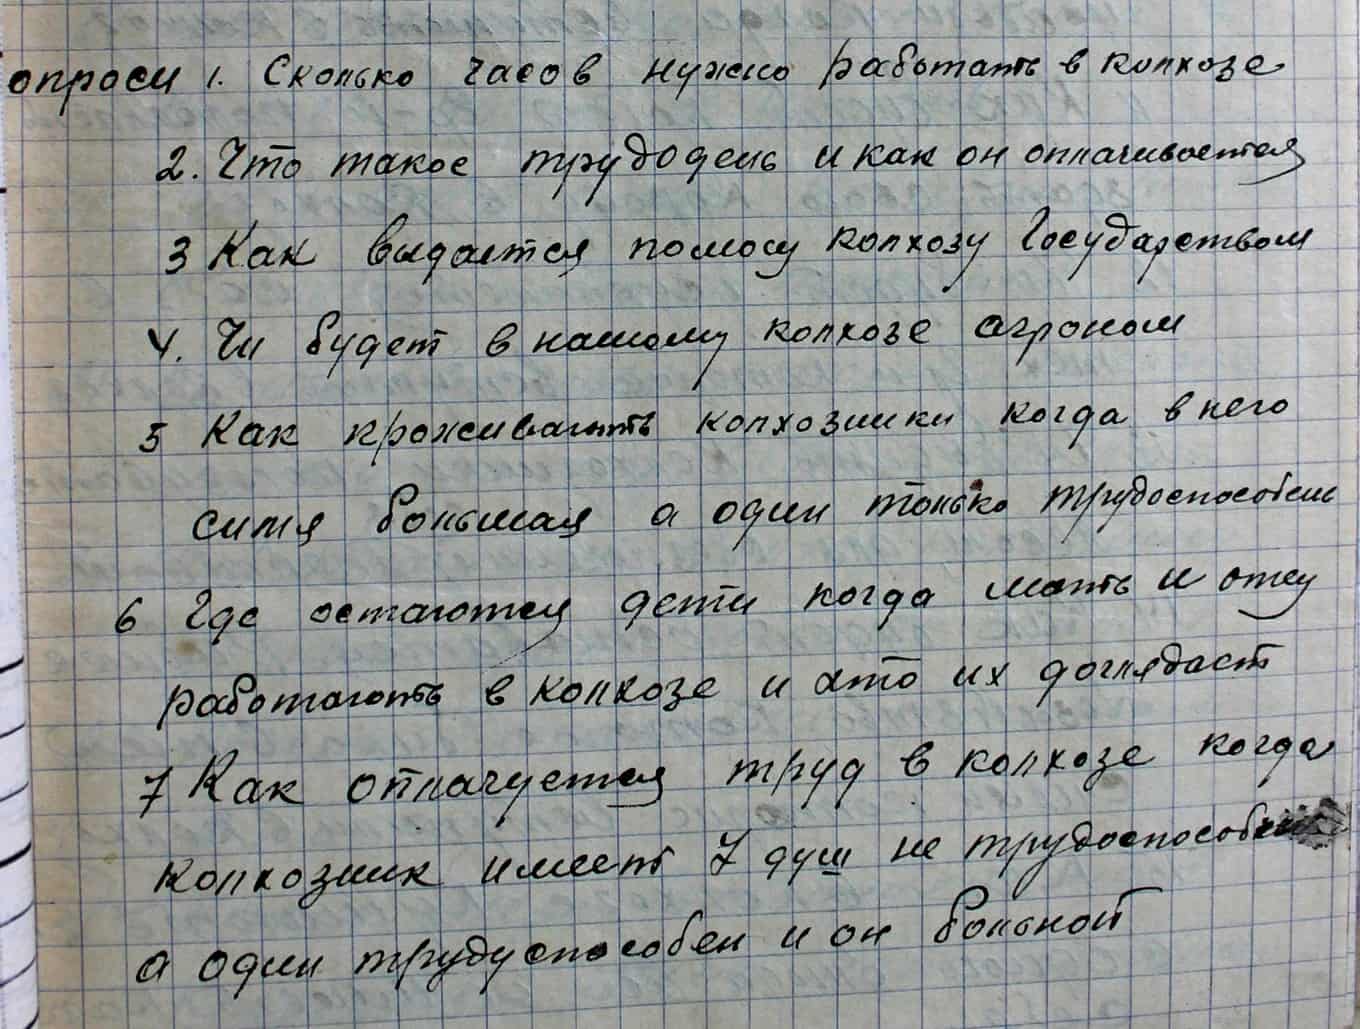 опроси 1. Сколько часов нужно работать в колхозе
2. Что такое трудодень и как он оплачивается
3 Как выдается помосч колхозу Государством
4. Чи будет в нашому колхозе агроном
5 Как проживають колхозники когда в него
симя большая а один только трудоспособень
6 Где остаются дети когда мать и отец
работають в колхозе и хто их доглядает
7 Как отплачуется труд в колхозе когда
колхозник имееть 7 душ не
а один трудуспособен и он больной